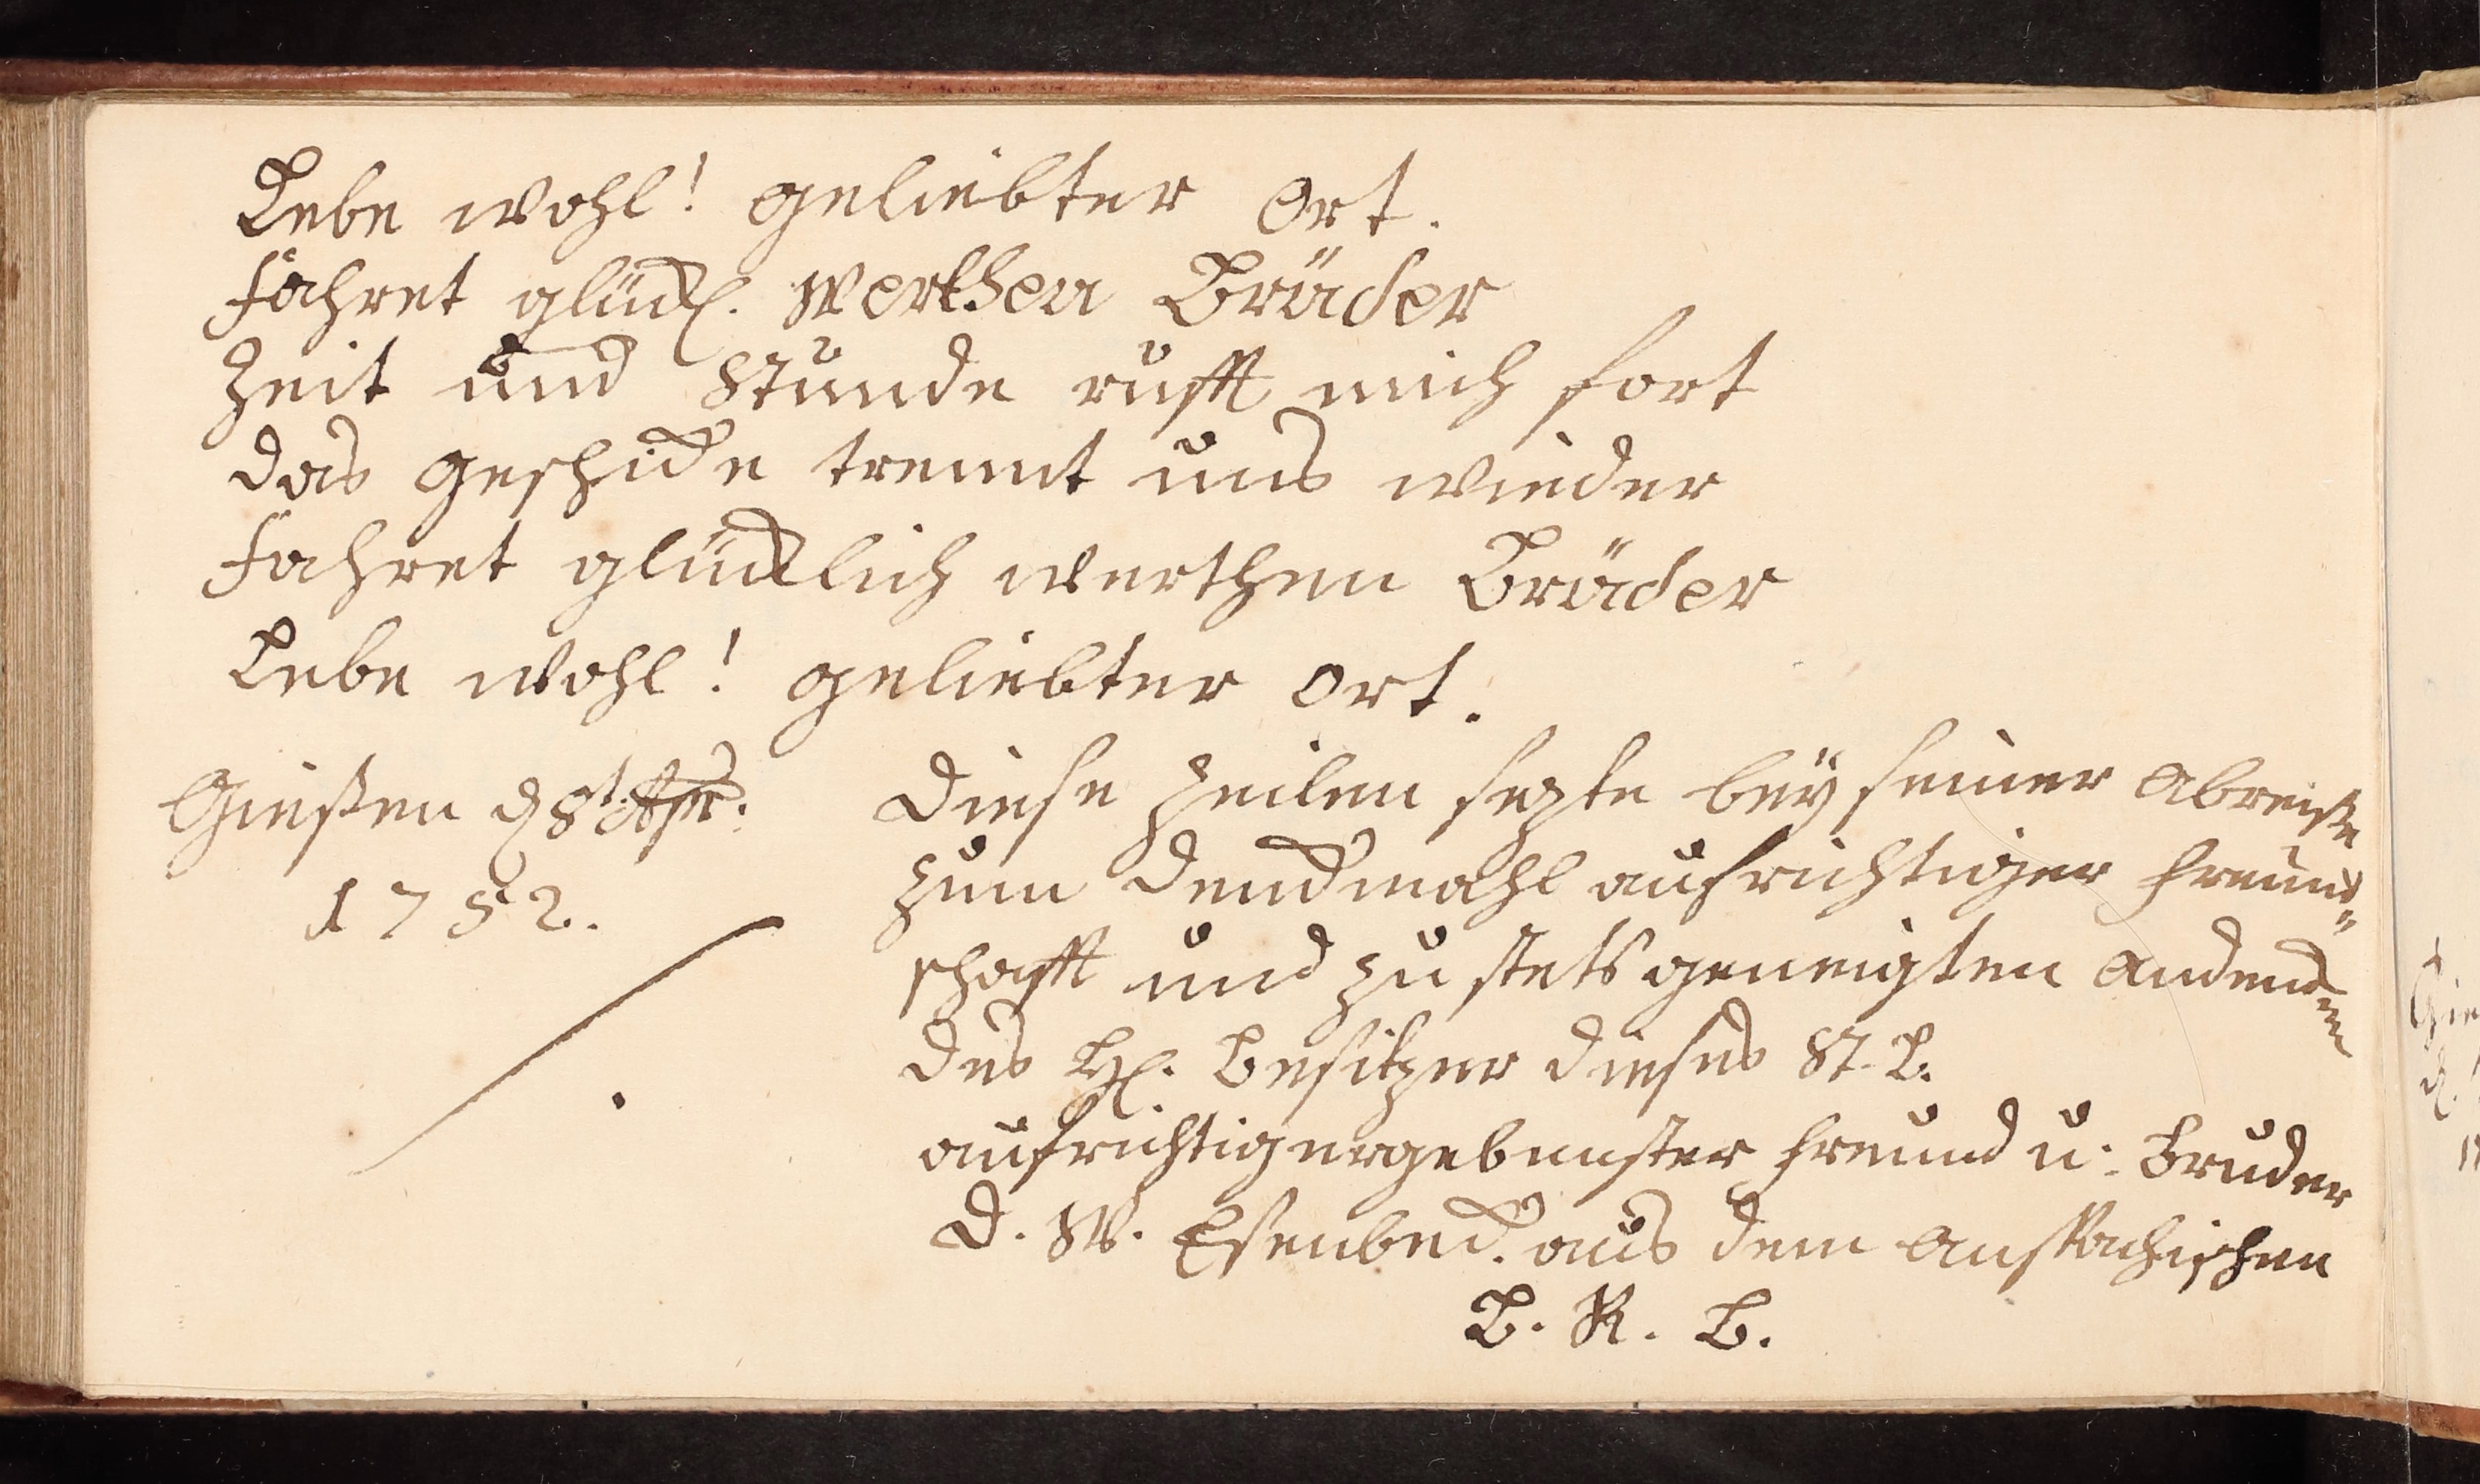 Lebe wohl! geliebter Ort.
Fahret glückl. werthen Brüder
Zeit und Stunde rufft mich fort
das geschicke trennt uns wieder
Fahret glücklich werthen Brüder
Lebe wohl! geliebter Ort.
Gießen d 8t. Apr:
1752.
Diese Zeilen sezte bey seiner Abreiße
zum Denckmahl aufrichtiger Freund-
schafft und zu stets geneigten Andencken
des H. Besitzer dieses St. B.
aufrichtig ergebenster Freund u. Bruder
D. W. Esenbeck. aus dem Anspachischen
B. R. B.